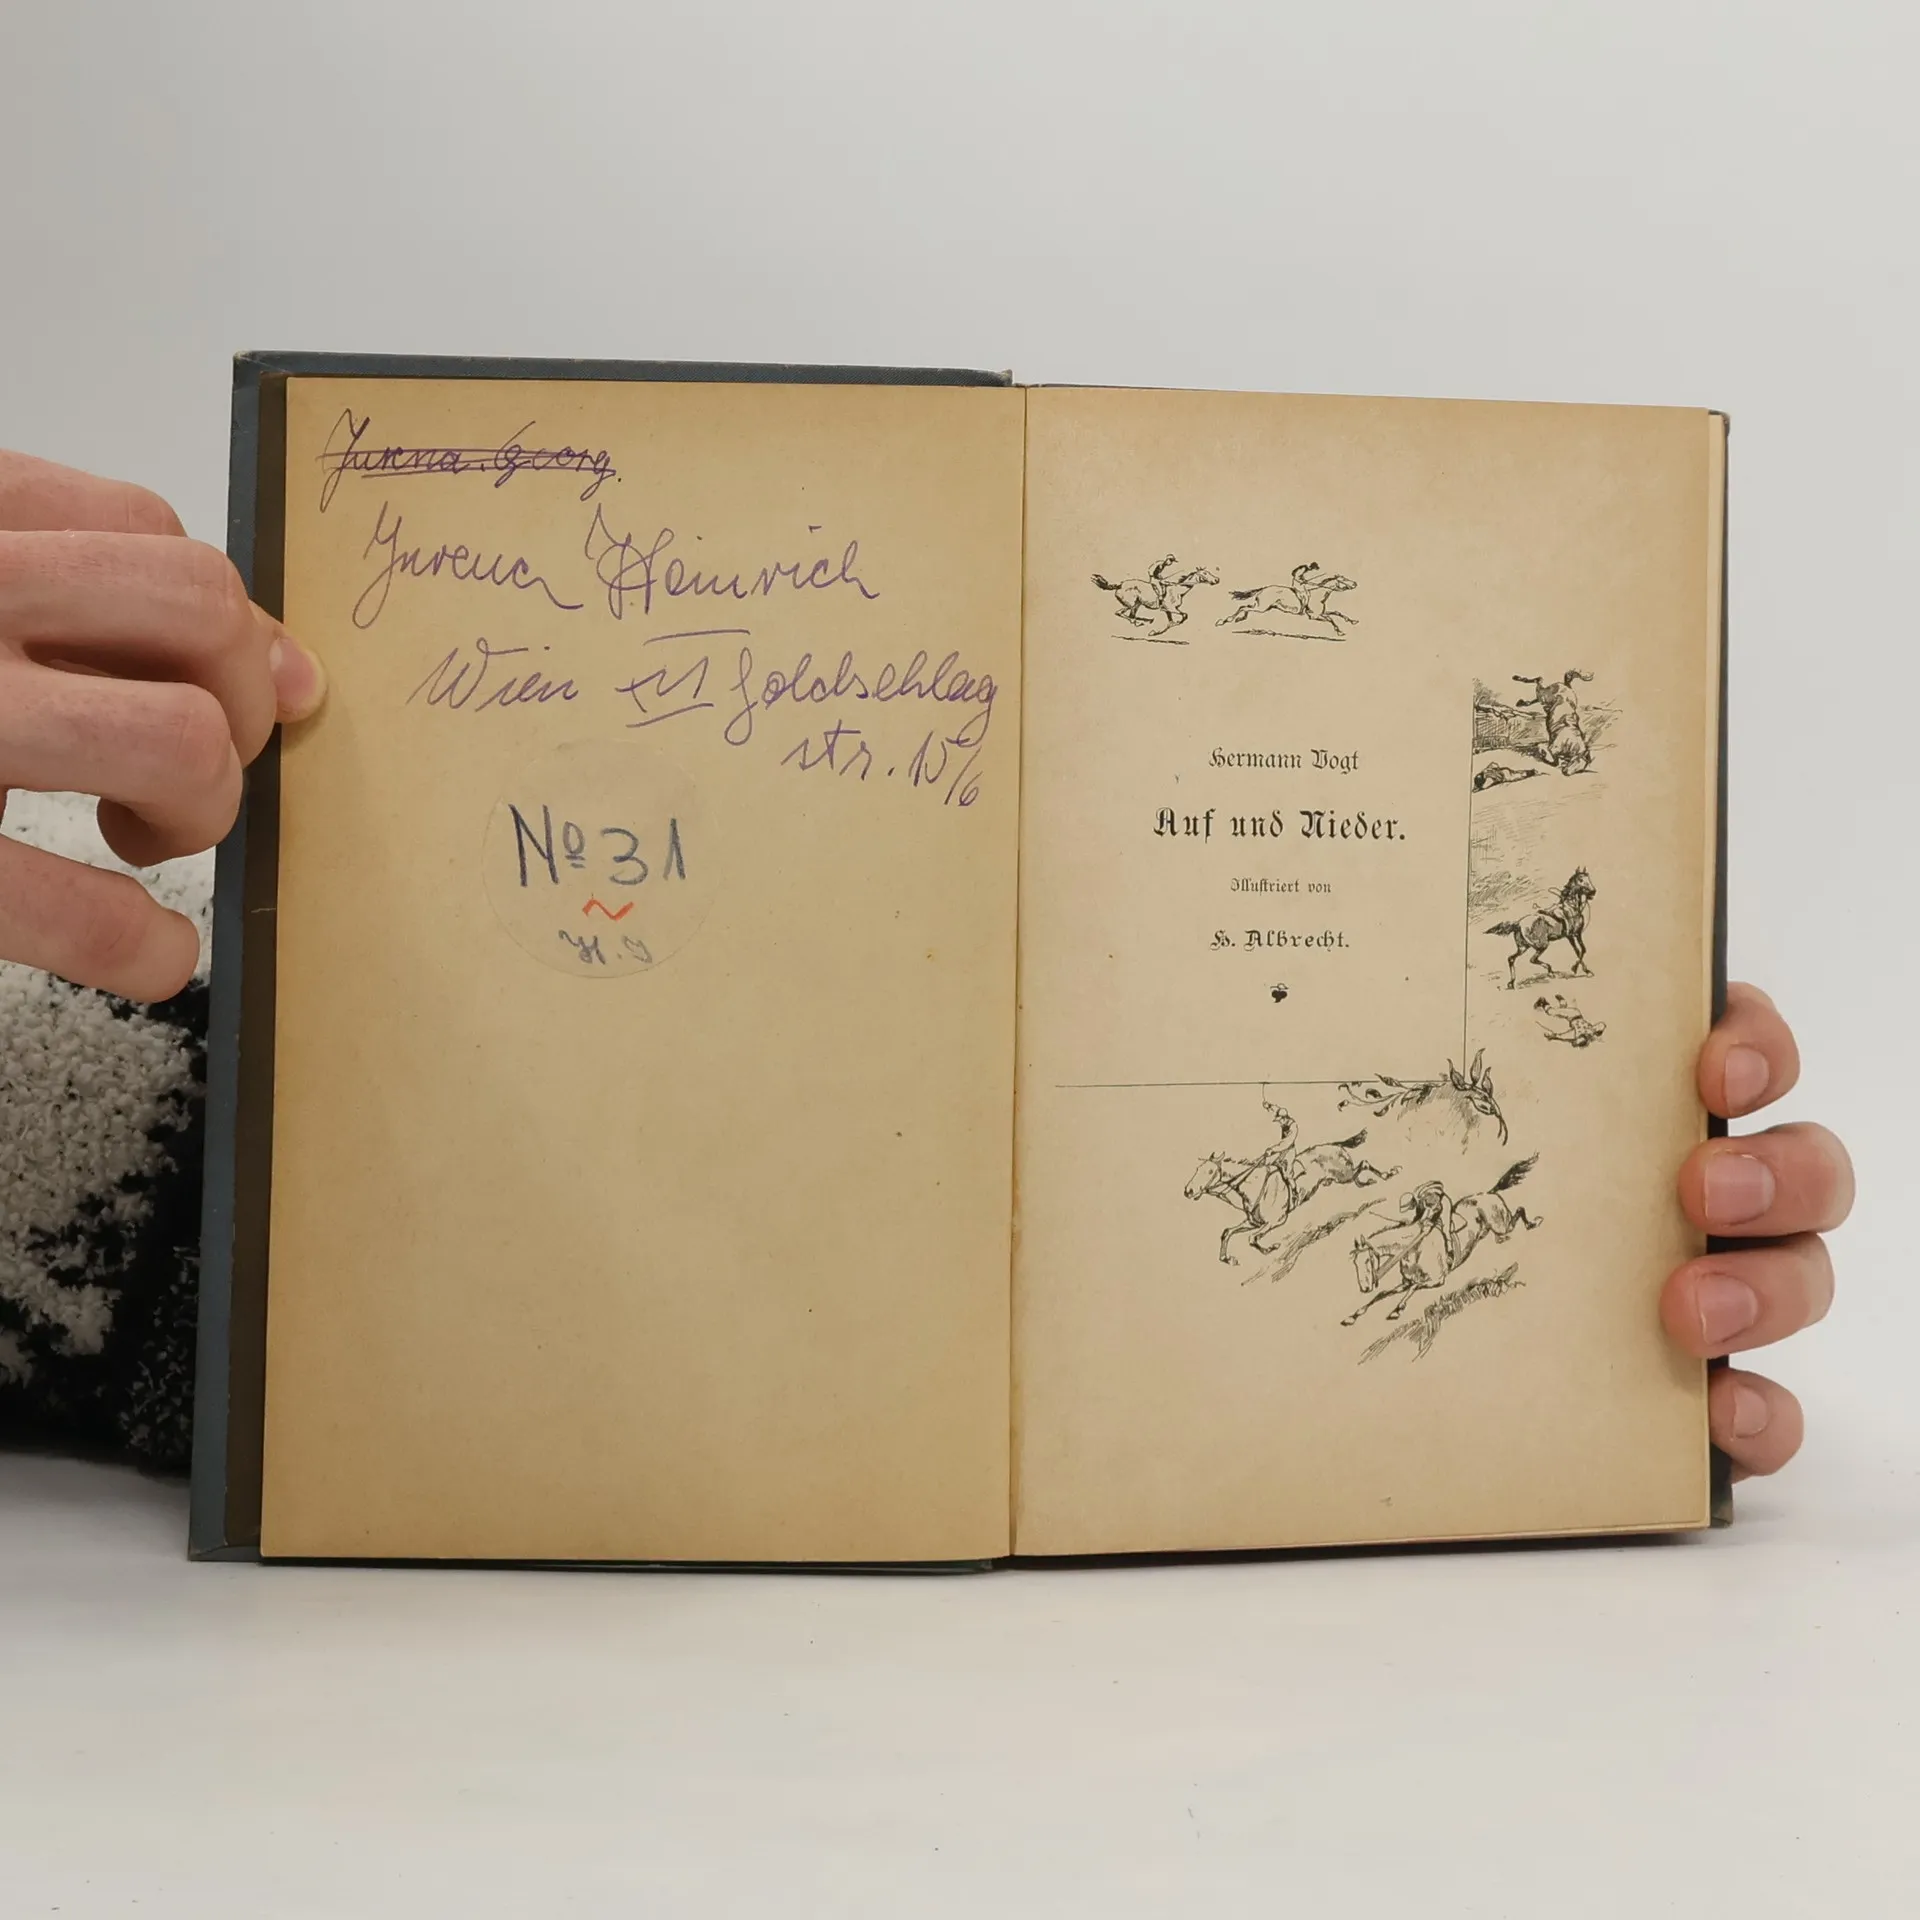 Georg.
Heinrich
Wien Goldschlag
str. 15/6
No 31
H. J
Hermann Vogt
Auf und Nieder.
Illustriert von
H. Albrecht.